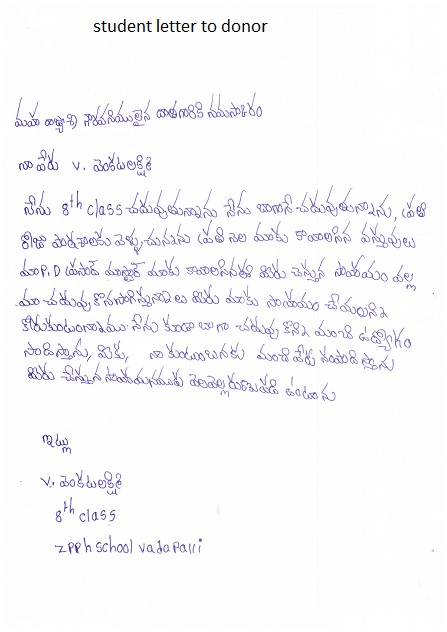 student letter to donor
మహా రాజ్యశ్రీ గౌరవనీయులైన దాతగారికి నమస్కారం
నా పేరు v. వెంకటలక్ష్మి
నేను 8th class చదువుతున్నాను నేను బాగానే చదువుతున్నాను, ప్రతి
రోజు పాఠశాలకు వెళ్ళుచున్నాను ప్రతి నెల మాకు కావాలసిన వస్తువులు
మా P.D ప్రసాద్ మాస్టార్ మాకు మీరు చేస్తున్న సాయం వల్ల
మా చదువు మీరు మాకు సాయం చేయాలని
కోరుకుంటున్నాము. నేను కూడా బాగా చదువు కొని మంచి ఉద్యోగం
సాధిస్తాను, మీకు, నా కుటుంబానికి మంచి పేరు సంపాదిస్తాను
మీరు చేస్తున్న ఉంటాను
ఇట్లు
v. వెంకటలక్ష్మి
8th class
zpph school vadapalli